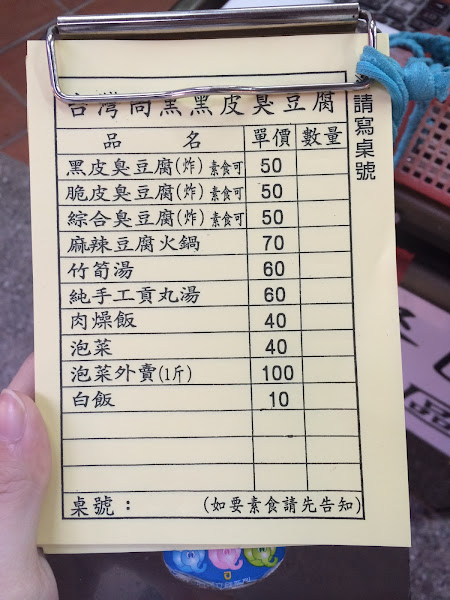 台灣尚黑黑皮臭豆腐
品 名 單價 數量
黑皮臭豆腐(炸)素食可 50
脆皮臭豆腐(炸)素食可 50
綜合臭豆腐(炸)素食可 50
麻辣豆腐火鍋 70
竹筍湯 60
純手工貢丸湯 60
肉燥飯 40
泡菜 40
泡菜外賣(1斤) 100
白飯 10
桌號： (如要素食請先告知)
請寫桌號